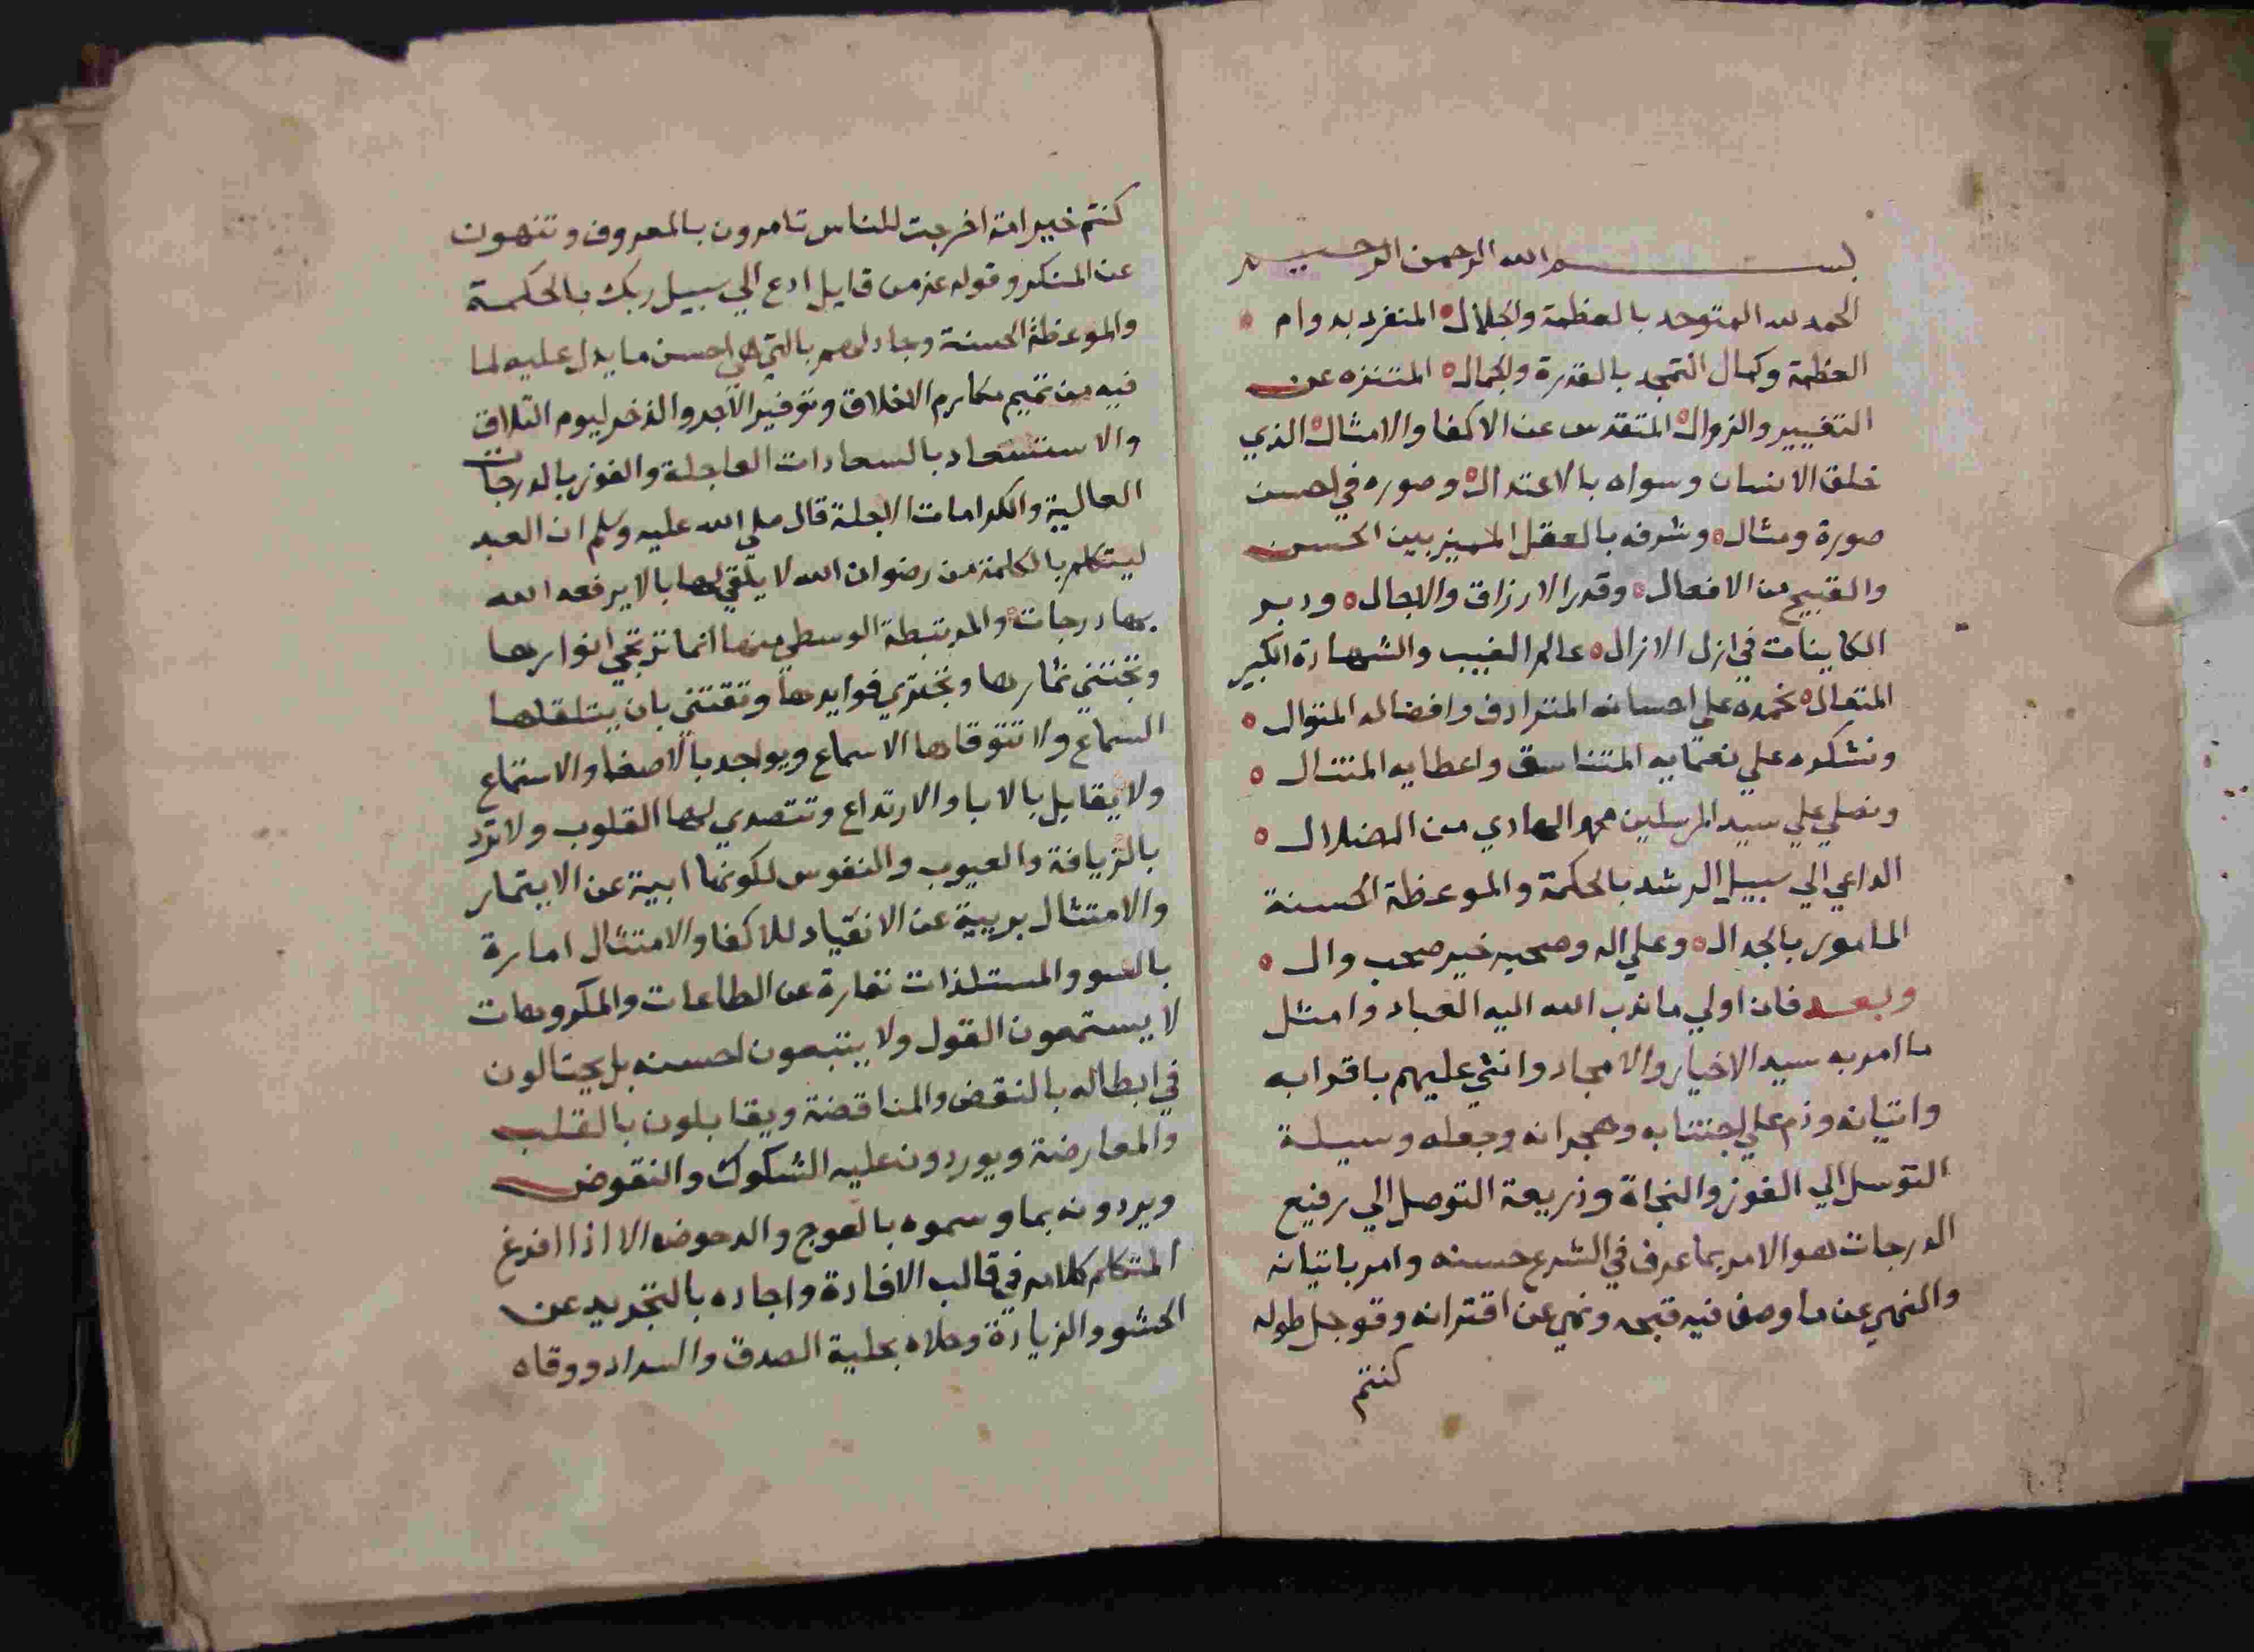 بسم الله الرحمن الرحيم
الحمد لله المتوحد بالعظمة والجلال المنفرد بدوام
العظمة وكمال التمجد بالقدرة والجمال المتنزه عن
التغيير والزوال المتقدس عن الاكفا والامثال الذي
خلق الانسان وسواه بالاعتدال وصوره في احسن
صورة ومثال وشرفه بالعقل المميز بين الحسن
والقبيح من الافعال وقدر الارزاق والاجال ودبر
الكاينات في ازل الازال عالم الغيب والشهادة الكبير
المتعال نحمده علي احسانه المترادف وافضاله المتوال
ونشكره علي نعمايه المتناسق واعطايه المتتال
ونصلي علي سيد المرسلين محمد الهادي من الضلال
الداعي الي سبيل الرشد بالحكمة والموعظة الحسنة
المامور بالجدال وعلي اله وصحبه خير صحب وال
وبعد فان اولي ما ندب الله اليه العباد وامتثل
ما امر به سيد الاخيار والامجاد واثني عليهم باقترابه
واتيانه وذم علي اجتنابه وهجرانه وجعله وسيلة
التوسل الي الفوز والنجاة وذريعة التوصل الي رفيع
الدرجات هو الامر بما عرف في الشرع حسنه وامر باتيانه
والنهي عن ما وصف فيه قبحه ونهي عن اقترانه وقو جل طوله
كنتم
كنتم خير امة اخرجت للناس تامرون بالمعروف وتنهون
عن المنكر وقوله عز من قايل ادع الي سبيل ربك بالحكمة
والموعظة الحسنة وجادلهم بالتي هي احسن ما يدل عليه لما
فيه من تتميم مكارم الاخلاق وتوفير الاجر والذخر ليوم التلاق
والاستسعاد بالسعادات العاجلة والفوز بالدرجات
العالية والكرامات الاجلة قال صلي الله عليه وسلم ان العبد
ليتكلم بالكلمة من رضوان الله لا يلقي لها بالا يرفعه الله
بها درجات والمرتبطة الوسطي منها انما ترتجي انوارها
وتجتني ثمارها وتجتزي فوايدها وتقتني بان يتلقاها
السماع ولا تتوقاها الاسماع ويواجد بالاصغا والاستماع
ولا يقابل بالابا والارتداع وتتصدي لها القلوب ولا ترد
بالزيافة والعيوب والنفوس لكونها ابية عن الايتمار
والامتثال بريية عن الانقياد للاكفا والامتثال امارة
بالسو والمستلذات نفارة عن الطاعات والمكروهات
لا يستمعون القول ولا يتبعون احسنه بل يحتالون
في ابطاله بالنقض والمناقضة ويقابلون بالقلب
والمعارضة ويوردون عليه الشكوك والنقوض
ويردونه بما وسموه بالعوج والدحوض الا اذا افرغ
المتكلم كلامه في قالب الافادة واجاده بالتجريد عن
الحشو والزيادة وحلاه بحلية الصدق والسداد ووقاه